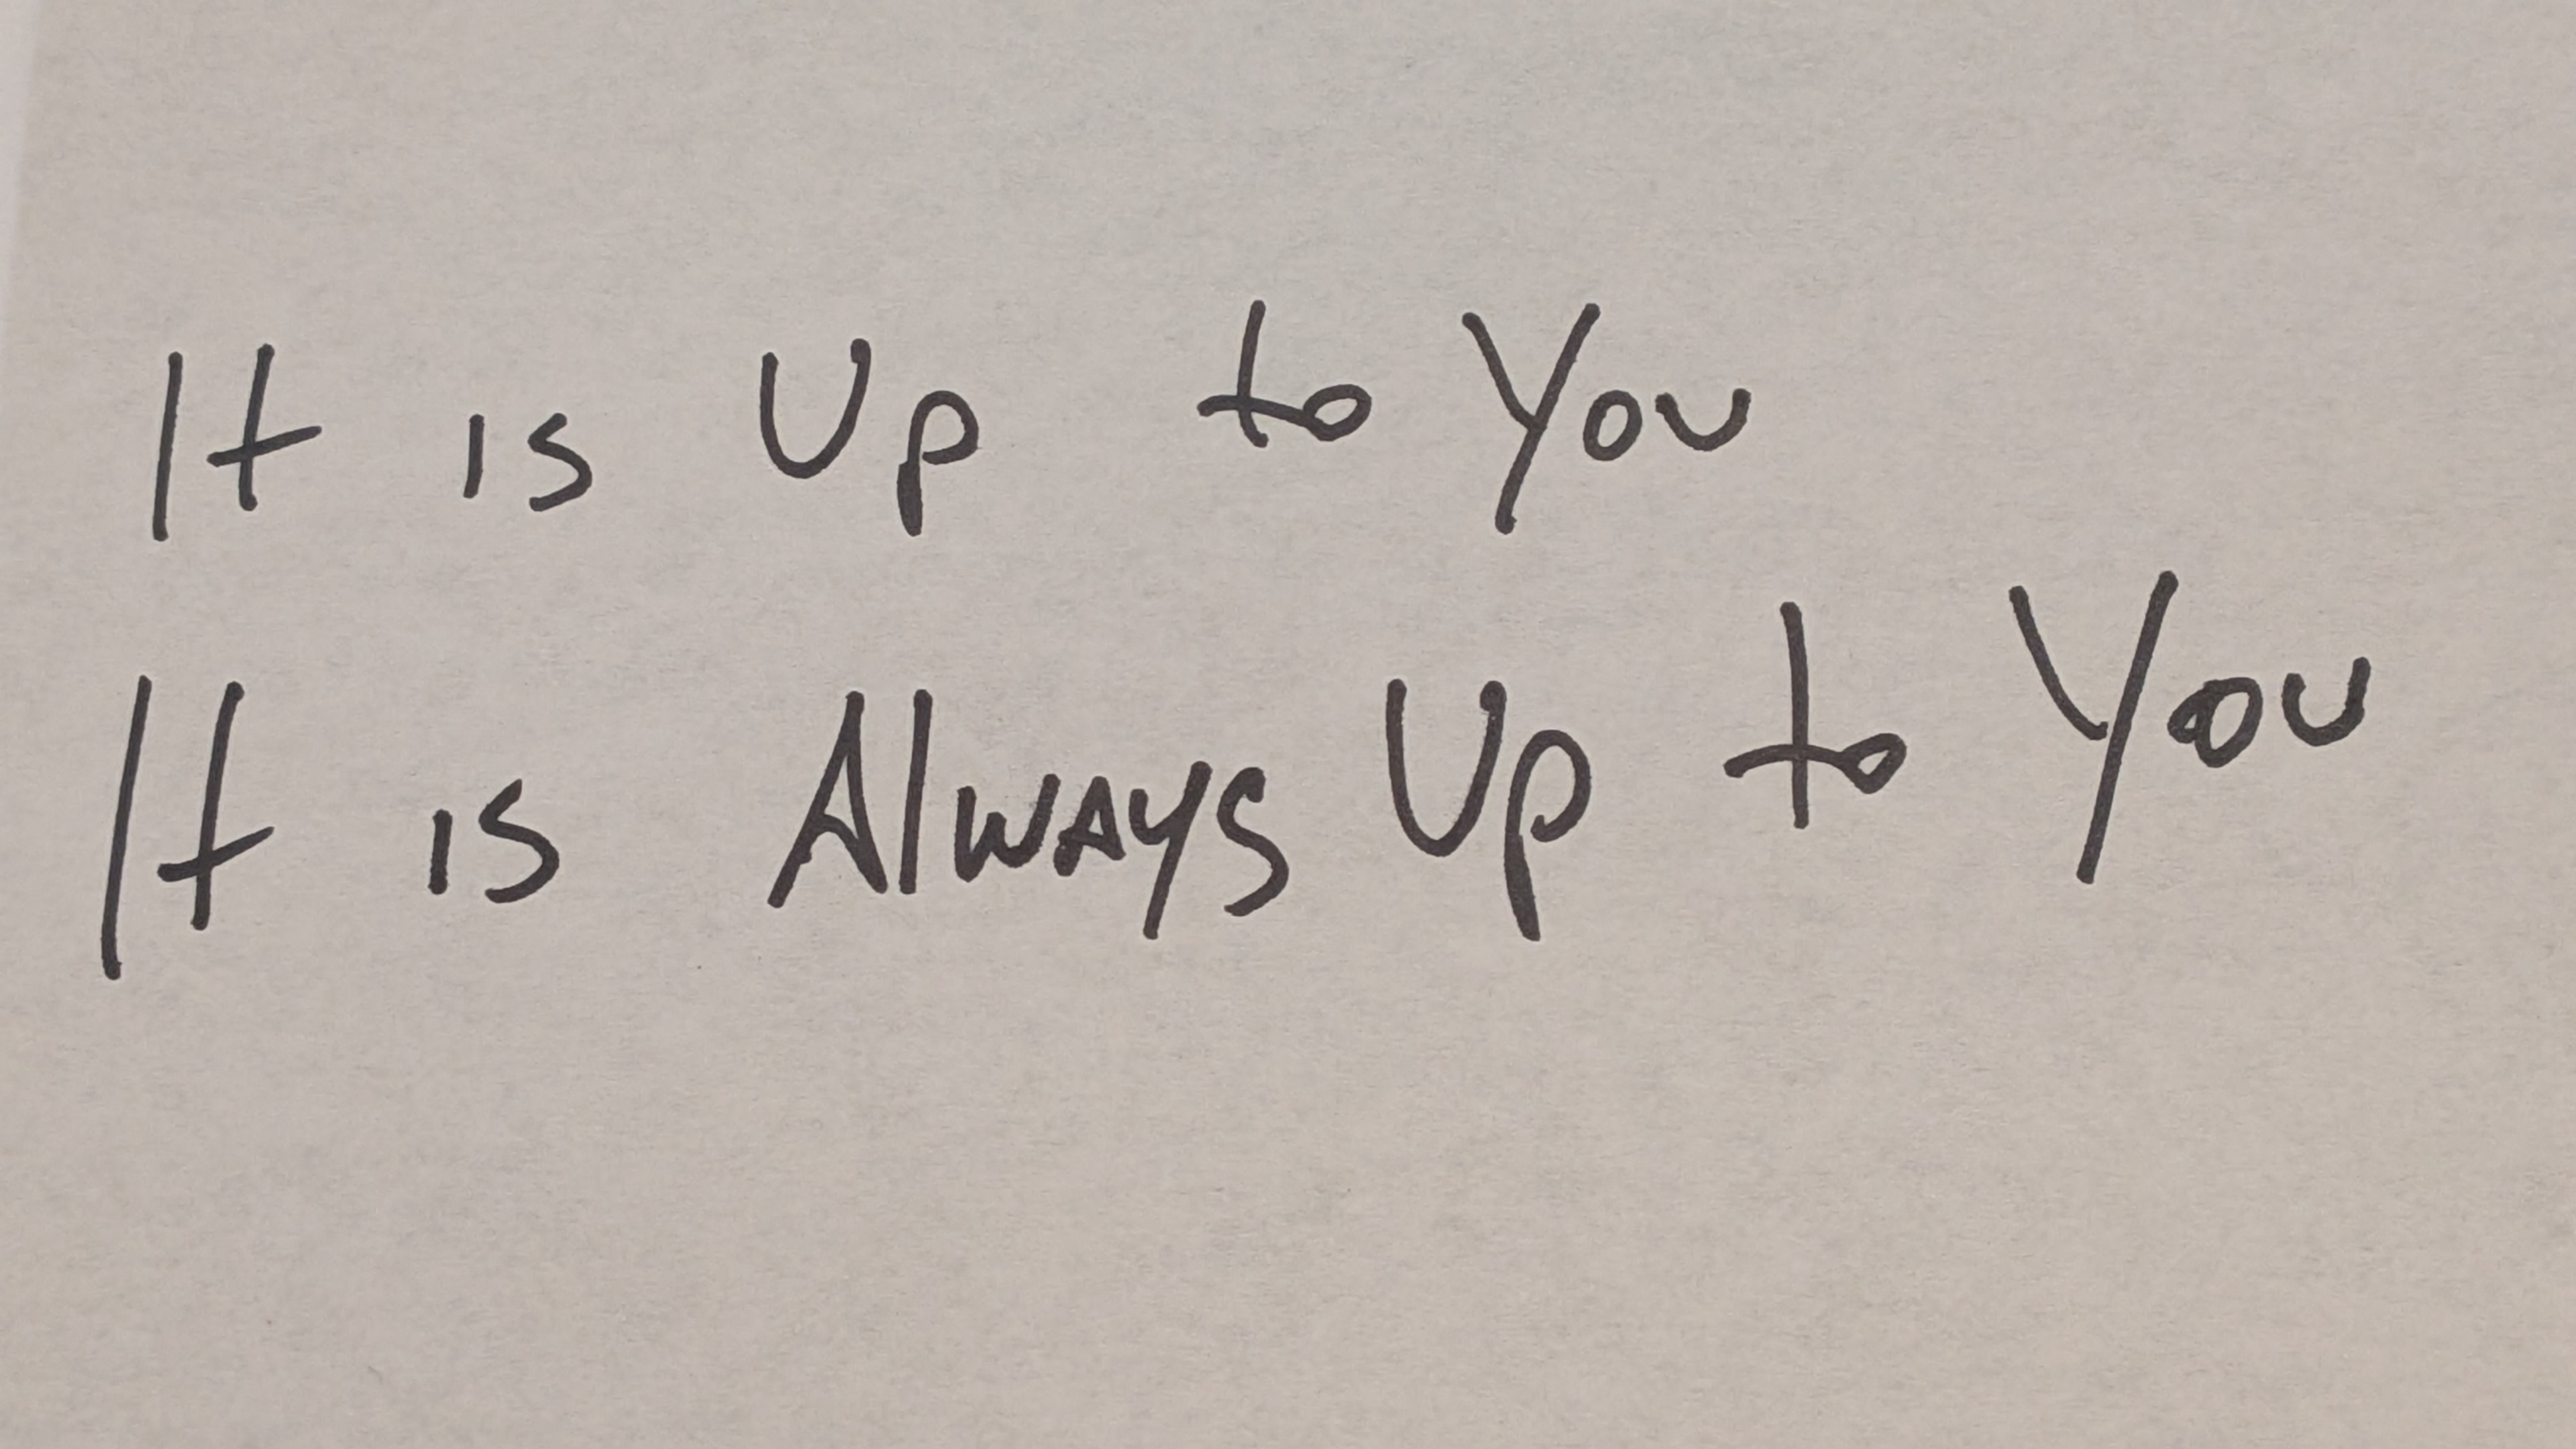 It is Up to You
It is Always Up to You